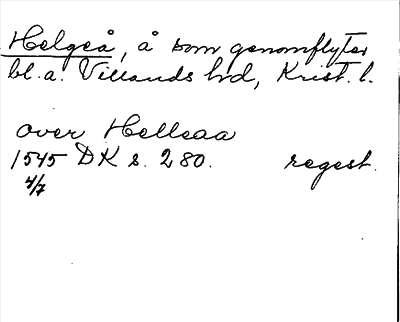 Helgeå, å som genomflyter
bl.a. Villands hd, Krist. l.
over Helleaa
1545 DK s. 280. regest.
4/7